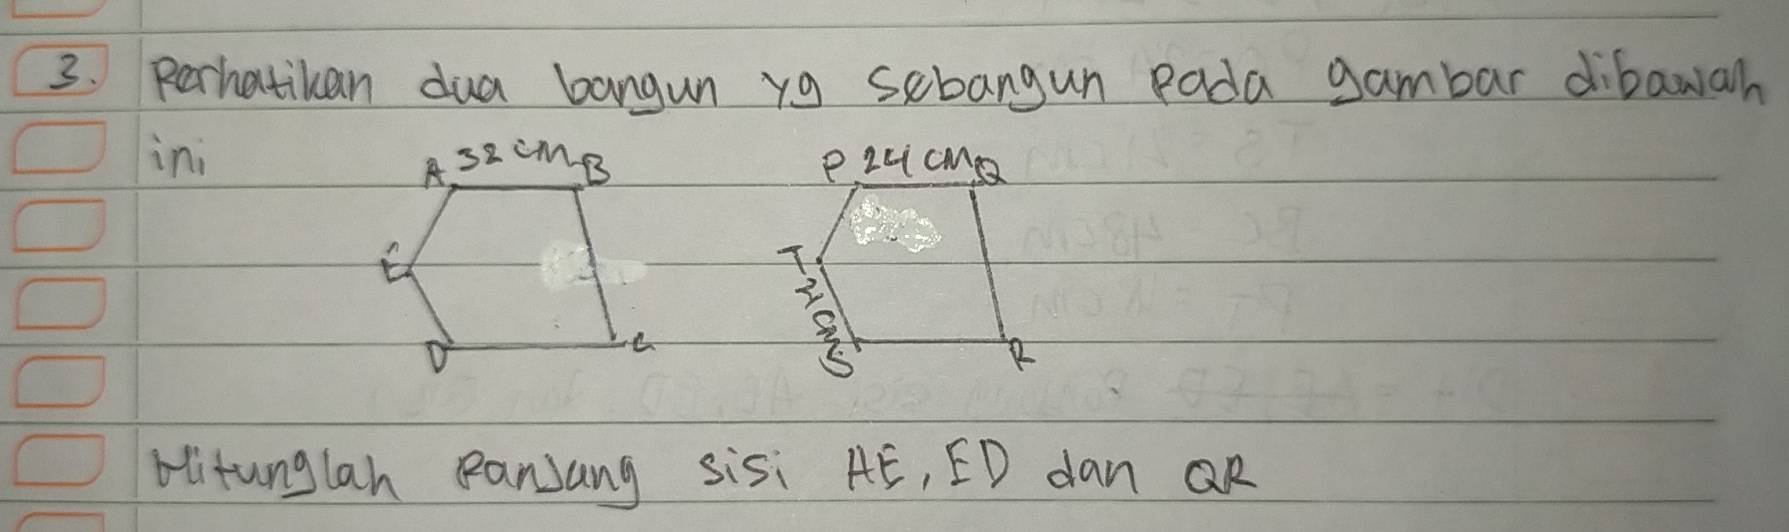 3. Perhatikan dua bangun yg sebangun Pada gambar dibawah
ini
A 32 cm B
P 24 cm Q
E
T
21 cm
D
C
S
R
Hitunglah Panjang sisi AE, ED dan QR